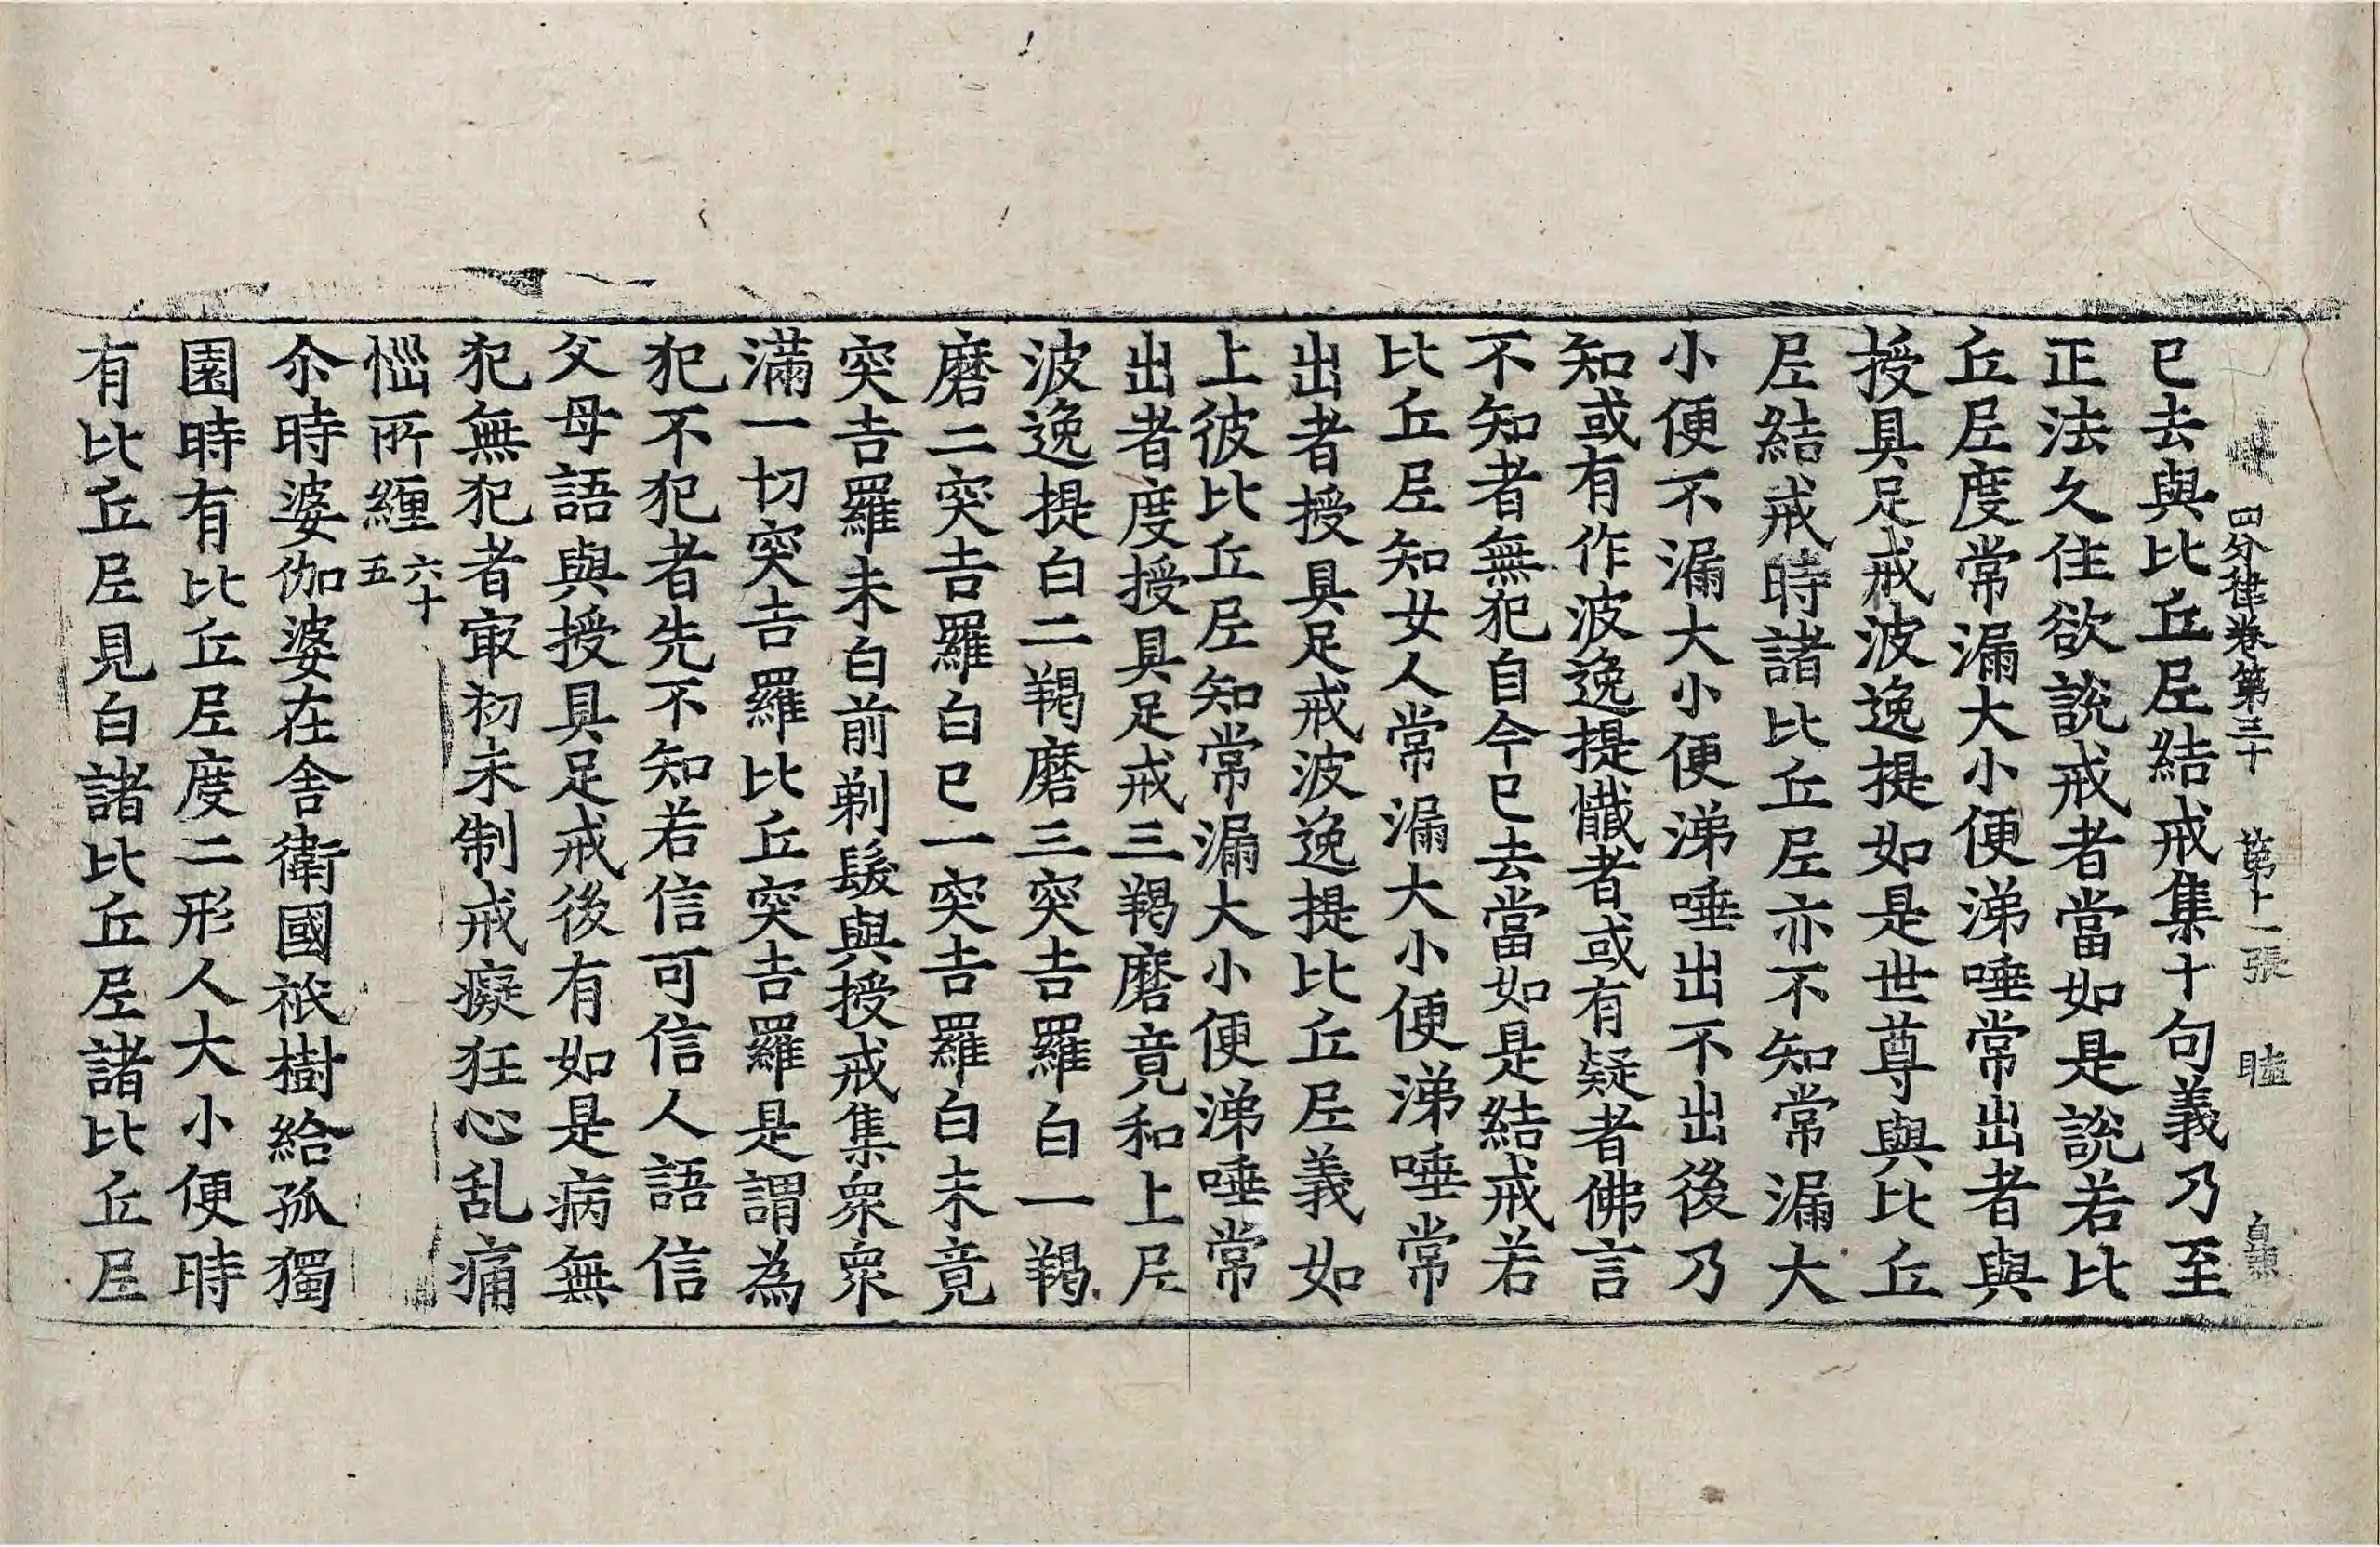 四分律卷第三十 第十一張 睦
已去與比丘𡰱結戒集十句義乃至
正法久住欲說戒者當如是說若比
丘𡰱度常漏大小便涕唾常出者與
授具足戒波逸提如是世尊與比丘
𡰱結戒時諸比丘𡰱亦不知常漏大
小便不漏大小便涕唾出不出後乃
知或有作波逸提懺者或有疑者佛言
不知者無犯自今已去當如是結戒若
比丘𡰱知女人常漏大小便涕唾常
出者授具足戒波逸提比丘𡰱義如
上彼比丘𡰱知常漏大小便涕唾常
出者度授具足戒三羯磨竟和上𡰱
波逸提白二羯磨三突吉羅白一羯
磨二突吉羅白已一突吉羅白未竟
突吉羅未白前剃髮與授戒集衆衆
滿一切突吉羅比丘突吉羅是謂為
犯不犯者先不知若信可信人語信
父母語與授具足戒後有如是病無
犯無犯者㝡初未制戒癡狂心乱痛
惱所纏六十五
尒時婆伽婆在舍衛國祇樹給孤獨
園時有比丘𡰱度二形人大小便時
有比丘𡰱見白諸比丘𡰱諸比丘𡰱